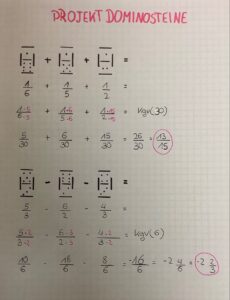 PROJEKT DOMINOSTEINE
+ + =
1/6 + 1/5 + 1/2 =
1·5/6·5 + 1·6/5·6 + 1·15/2·15 = kgV(30)
5/30 + 6/30 + 15/30 = 26/30 = 13/15
- - =
5/3 - 6/2 - 4/3 =
5·2/3·2 - 6·3/2·3 - 4·2/3·2 = kgV(6)
10/6 - 18/6 - 8/6 = -16/6 = -2 4/6 = -2 2/3